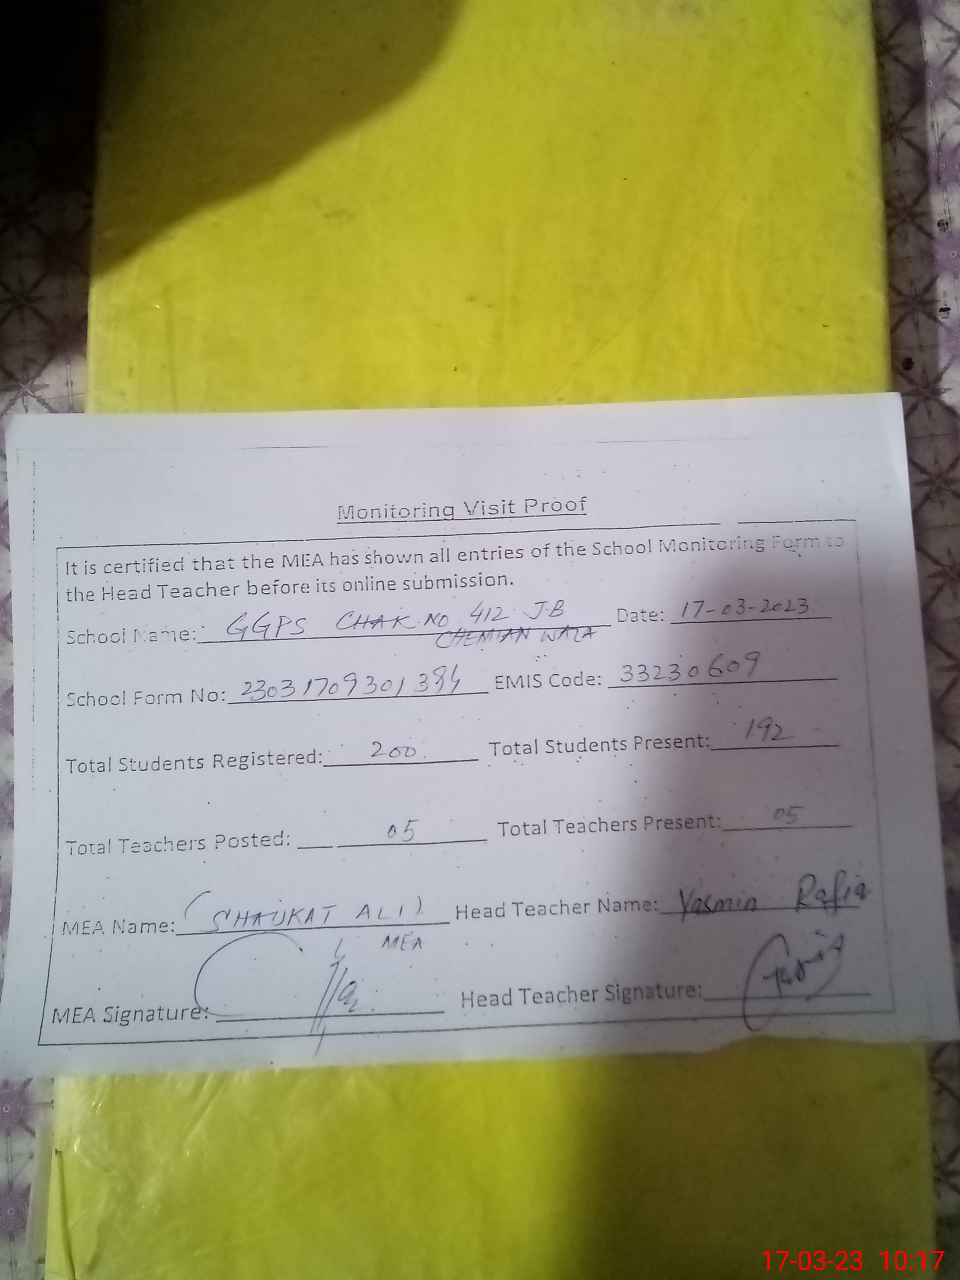 Monitoring Visit Proof
It is certified that the MEA has shown all entries of the School Monitoring Form to
the Head Teacher before its online submission.
School Name: GGPS CHAK NO 412 JB Date: 17-03-2023
CHEMIAN WALA
School Form No: EMIS Code: 33230609
Total Students Registered: 200 Total Students Present: 192
Total Teachers Posted: 05 Total Teachers Present: 05
MEA Name: (SHAUKAT ALI) Head Teacher Name: Yasmin Rafiq
MEA
MEA Signature: Head Teacher Signature:
17-03-23 10:17